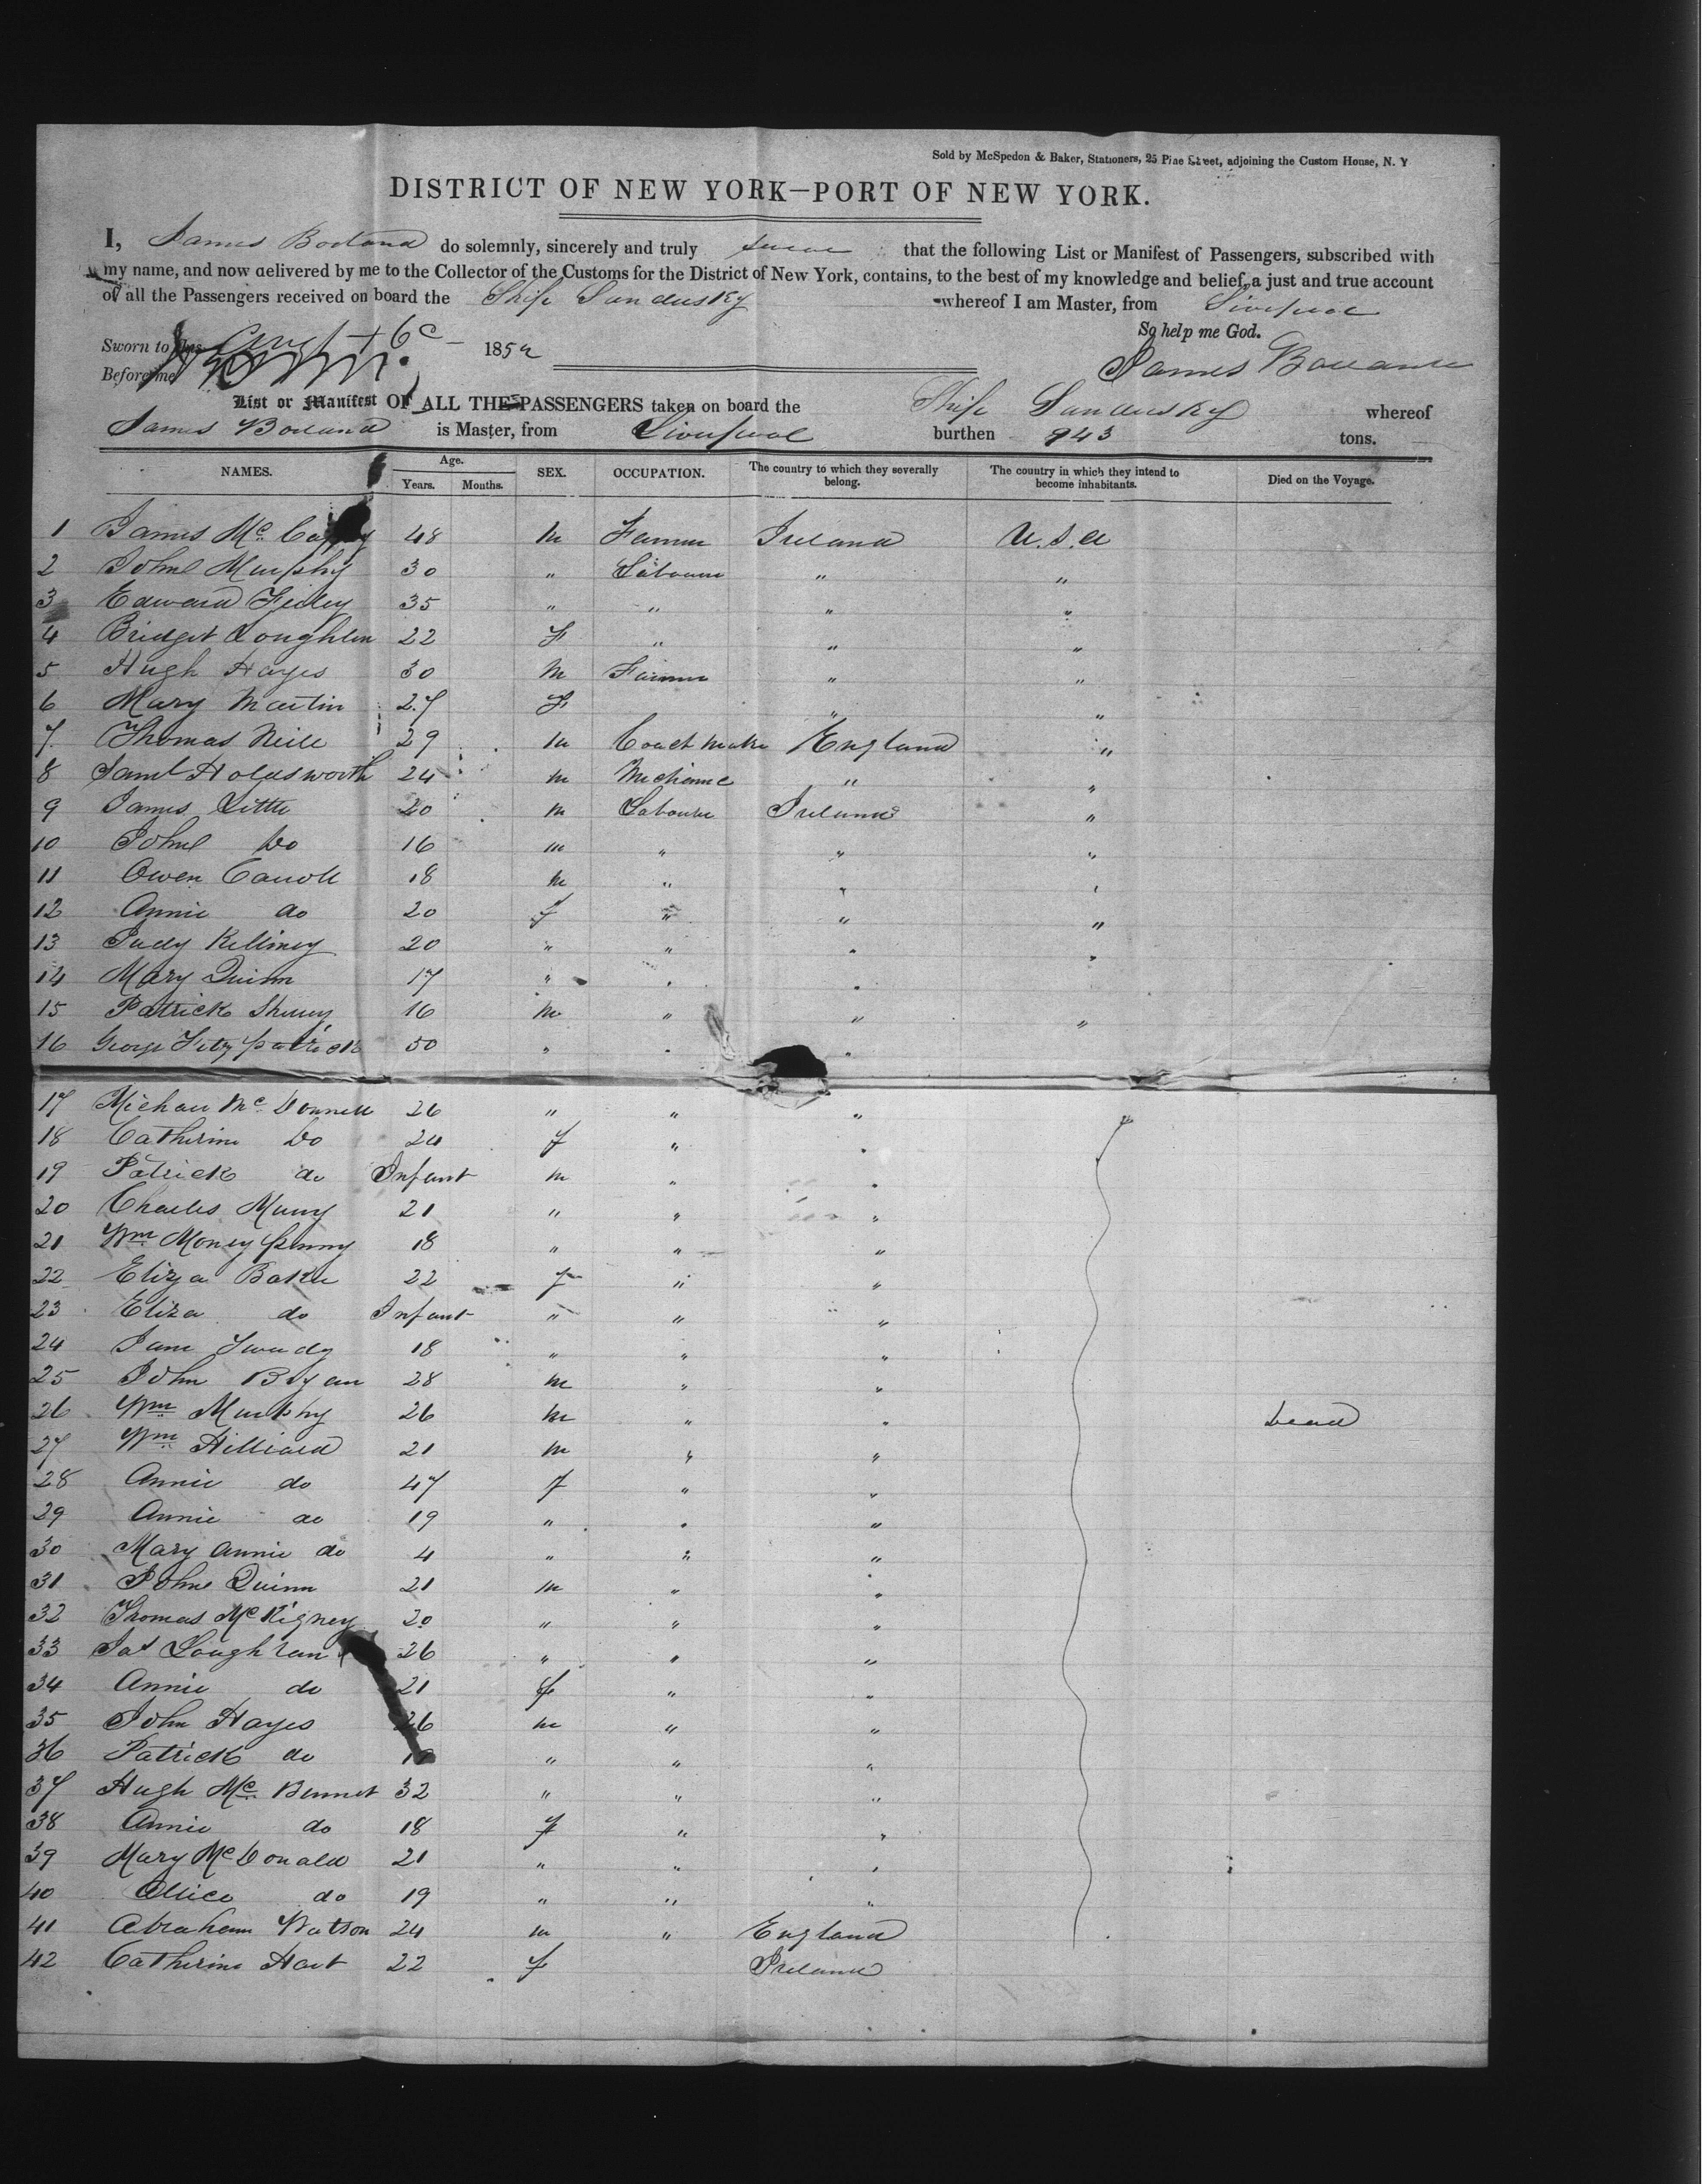 Sold by McSpedon & Baker, Stationers, 25 Pine Street, adjoining the Custom House, N. Y
DISTRICT OF NEW YORK—PORT OF NEW YORK.
I, James Borland do solemnly, sincerely and truly swear that the following List or Manifest of Passengers, subscribed with
my name, and now delivered by me to the Collector of the Customs for the District of New York, contains, to the best of my knowledge and belief, a just and true account
of all the Passengers received on board the Ship Sandusky whereof I am Master, from Liverpool
So help me God.
Sworn to this Augt 6 1852
James Borland
Before me
List or Manifest OF ALL THE PASSENGERS taken on board the Ship Sandusky whereof
James Borland is Master, from Liverpool burthen 943 tons.
NAMES. Age. Years. Months. SEX. OCCUPATION. The country to which they severally belong. The country in which they intend to become inhabitants. Died on the Voyage.
1 James Mc 48 m Farmer Ireland U.S.A
2 John Murphy 30 " Labourer " "
3 Edward 35 " " " "
4 Bridget Loughlin 22 F " " "
5 Hugh Hayes 30 m Farmer " "
6 Mary Martin 27 F " "
7 Thomas Neill 29 m Coach maker England "
8 Saml Holdsworth 24 m Mechanic " "
9 James Little 20 m Labourer Ireland "
10 John Do 16 m " " "
11 Owen Carroll 18 m " " "
12 Annie do 20 f " " "
13 Judy 20 " " " "
14 Mary Quinn 17 " " " "
15 Patrick 16 m " " "
16 George Fitzpatrick 50 " " "
17 Michael Mc Donnell 26 " " "
18 Catherine Do 24 f " "
19 Patrick do Infant m " "
20 Charles 21 " " "
21 Wm Moneypenny 18 " " "
22 Eliza Baker 22 f " "
23 Eliza do Infant " " "
24 Jane 18 " " "
25 John Bryan 28 m " "
26 Wm Murphy 26 m " " Dead
27 Wm Hilliard 21 m " "
28 Annie do 47 f " "
29 Annie do 19 " " "
30 Mary Annie do 4 " " "
31 John Quinn 21 m " "
32 Thomas McKigney 20 " " "
33 Jas Loughran 26 " " "
34 Annie do 21 f " "
35 John Hayes 26 m " "
36 Patrick do " " "
37 Hugh Mc Bennet 32 " " "
38 Annie do 18 f " "
39 Mary McDonald 21 " " "
40 Allice do 19 " " "
41 Abraham Watson 24 m " England
42 Catherine Hart 22 f Ireland